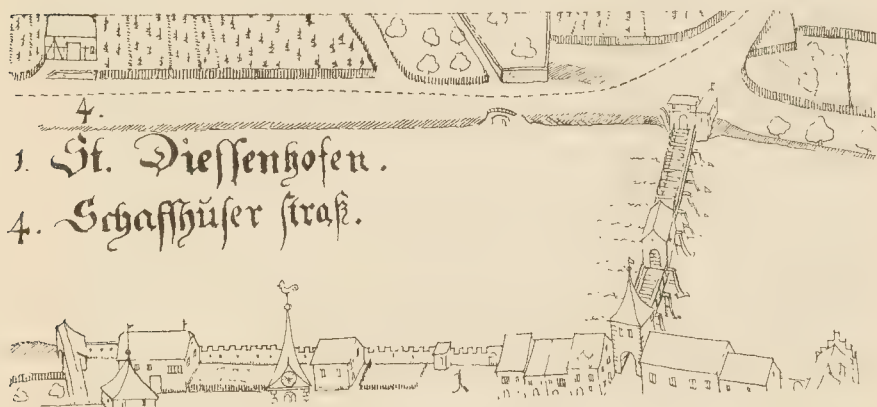 4.
4.
1. St. Diessenhofen.
4. Schaffhůser straß.